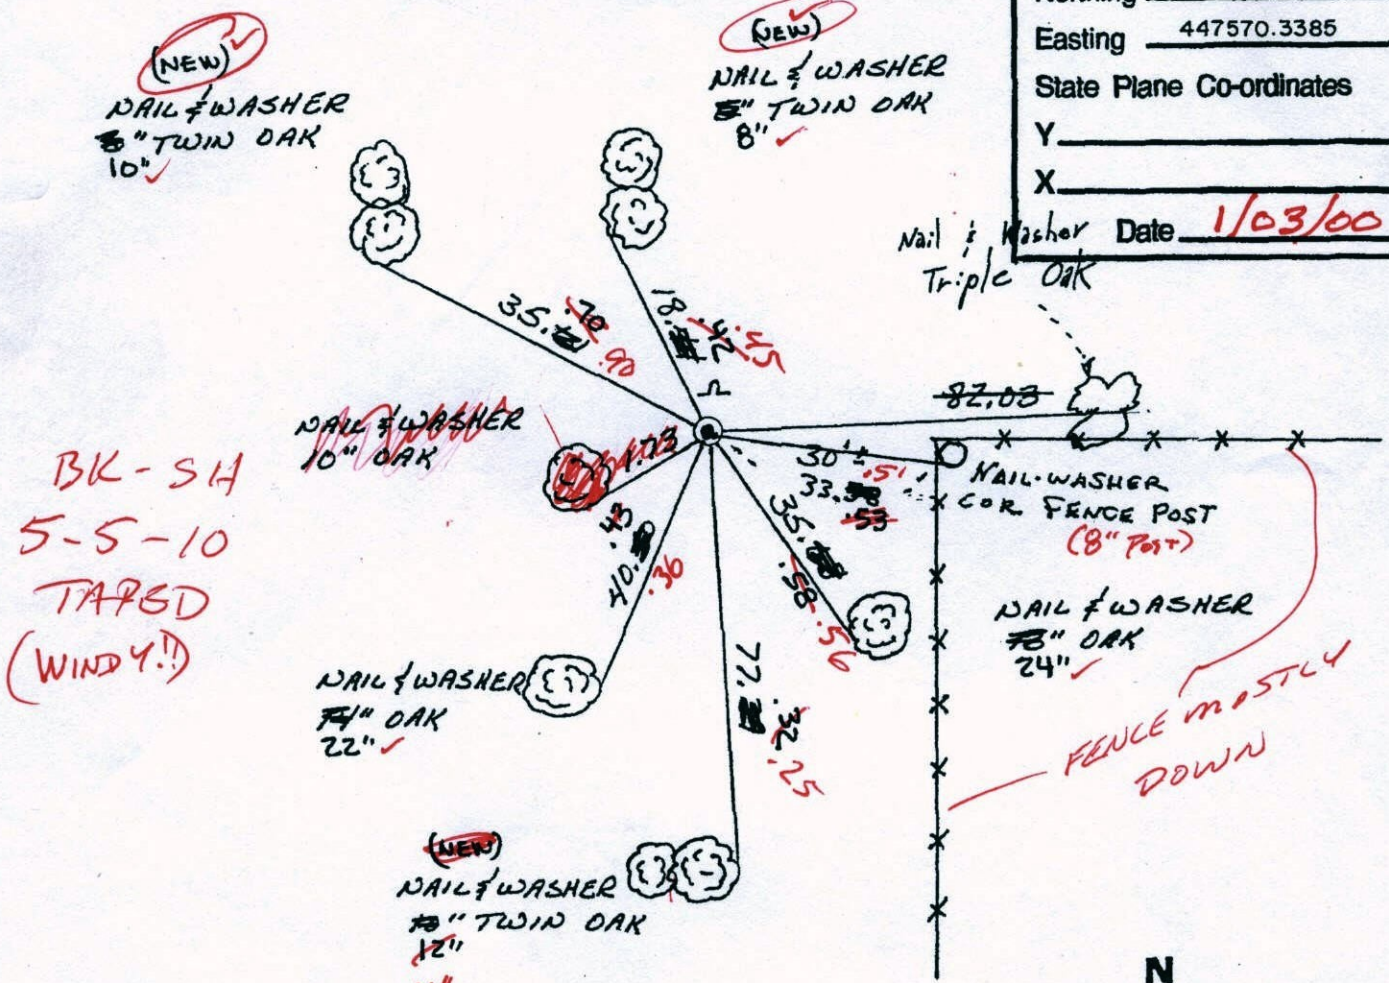 (NEW)
NAIL & WASHER
" TWIN OAK
10"
(NEW)
NAIL & WASHER
" TWIN OAK
8"
Easting 447570.3385
State Plane Co-ordinates
Y
X
Date 1/03/00
Nail & Washer
Triple Oak
35. .70
.90
18. .42 .45
82.03
NAIL & WASHER
10" OAK
1.73
30'±
.51
33.
.53
NAIL-WASHER
COR. FENCE POST
(8" POST)
BK - SH
5-5-10
TAPED
(WINDY!!)
40. .43
.36
35.
.58 .56
NAIL & WASHER
" OAK
24"
NAIL & WASHER
" OAK
22"
77. .32 .25
FENCE MOSTLY
DOWN
(NEW)
NAIL & WASHER
" TWIN OAK
12"
N